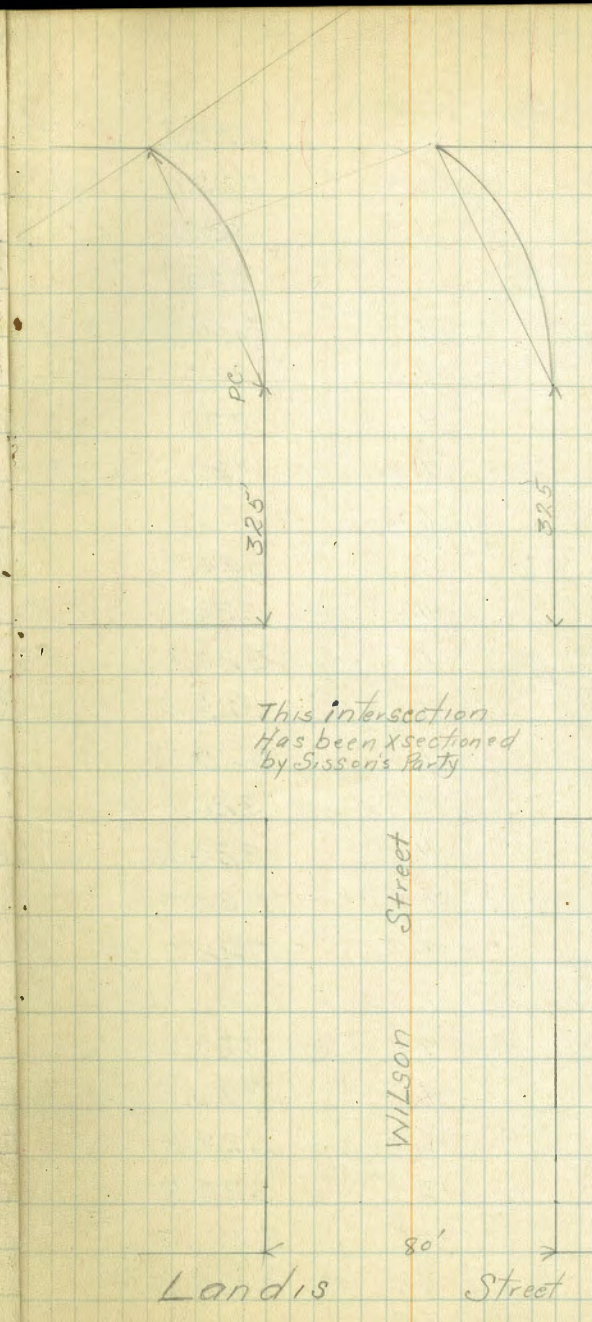 P.C.
325'
325'
This intersection
Has been Xsectioned
by Sisson's Party
Wilson Street
80'
Landis Street